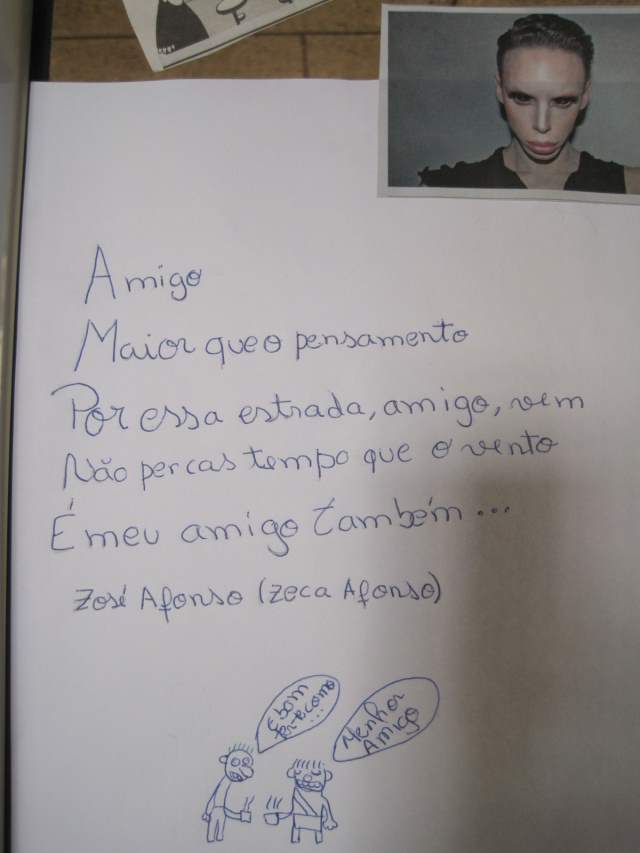 Amigo
Maior que o pensamento
Por essa estrada, amigo, vem
Não percas tempo que o vento
É meu amigo também...
José Afonso (Zeca Afonso)
É bom
ter-te como
...
Menhor
Amigo